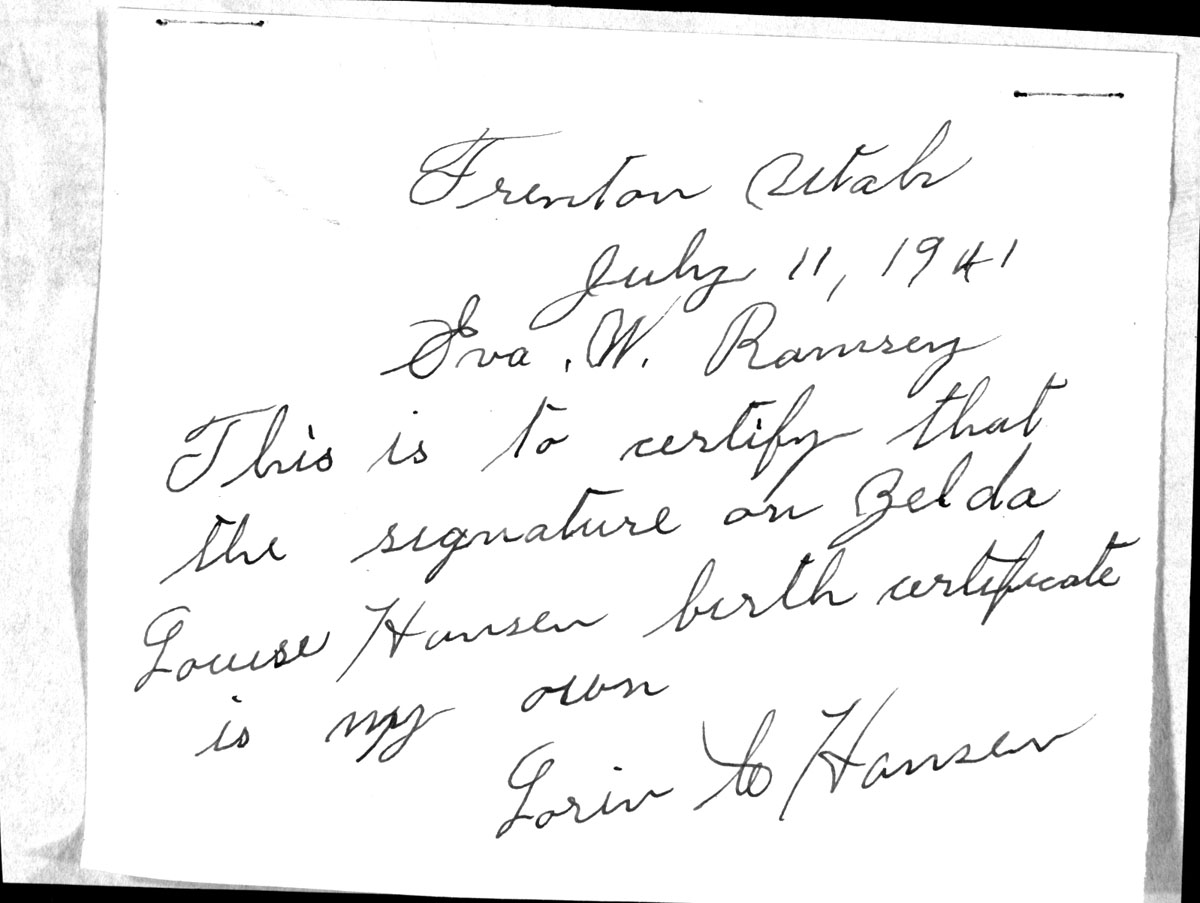 Trenton Utah
July 11, 1941
Eva. W. Ramsey
This is to certify that
the signature on Zelda
Louise Hansen birth certificate
is my own
Lorin Hansen